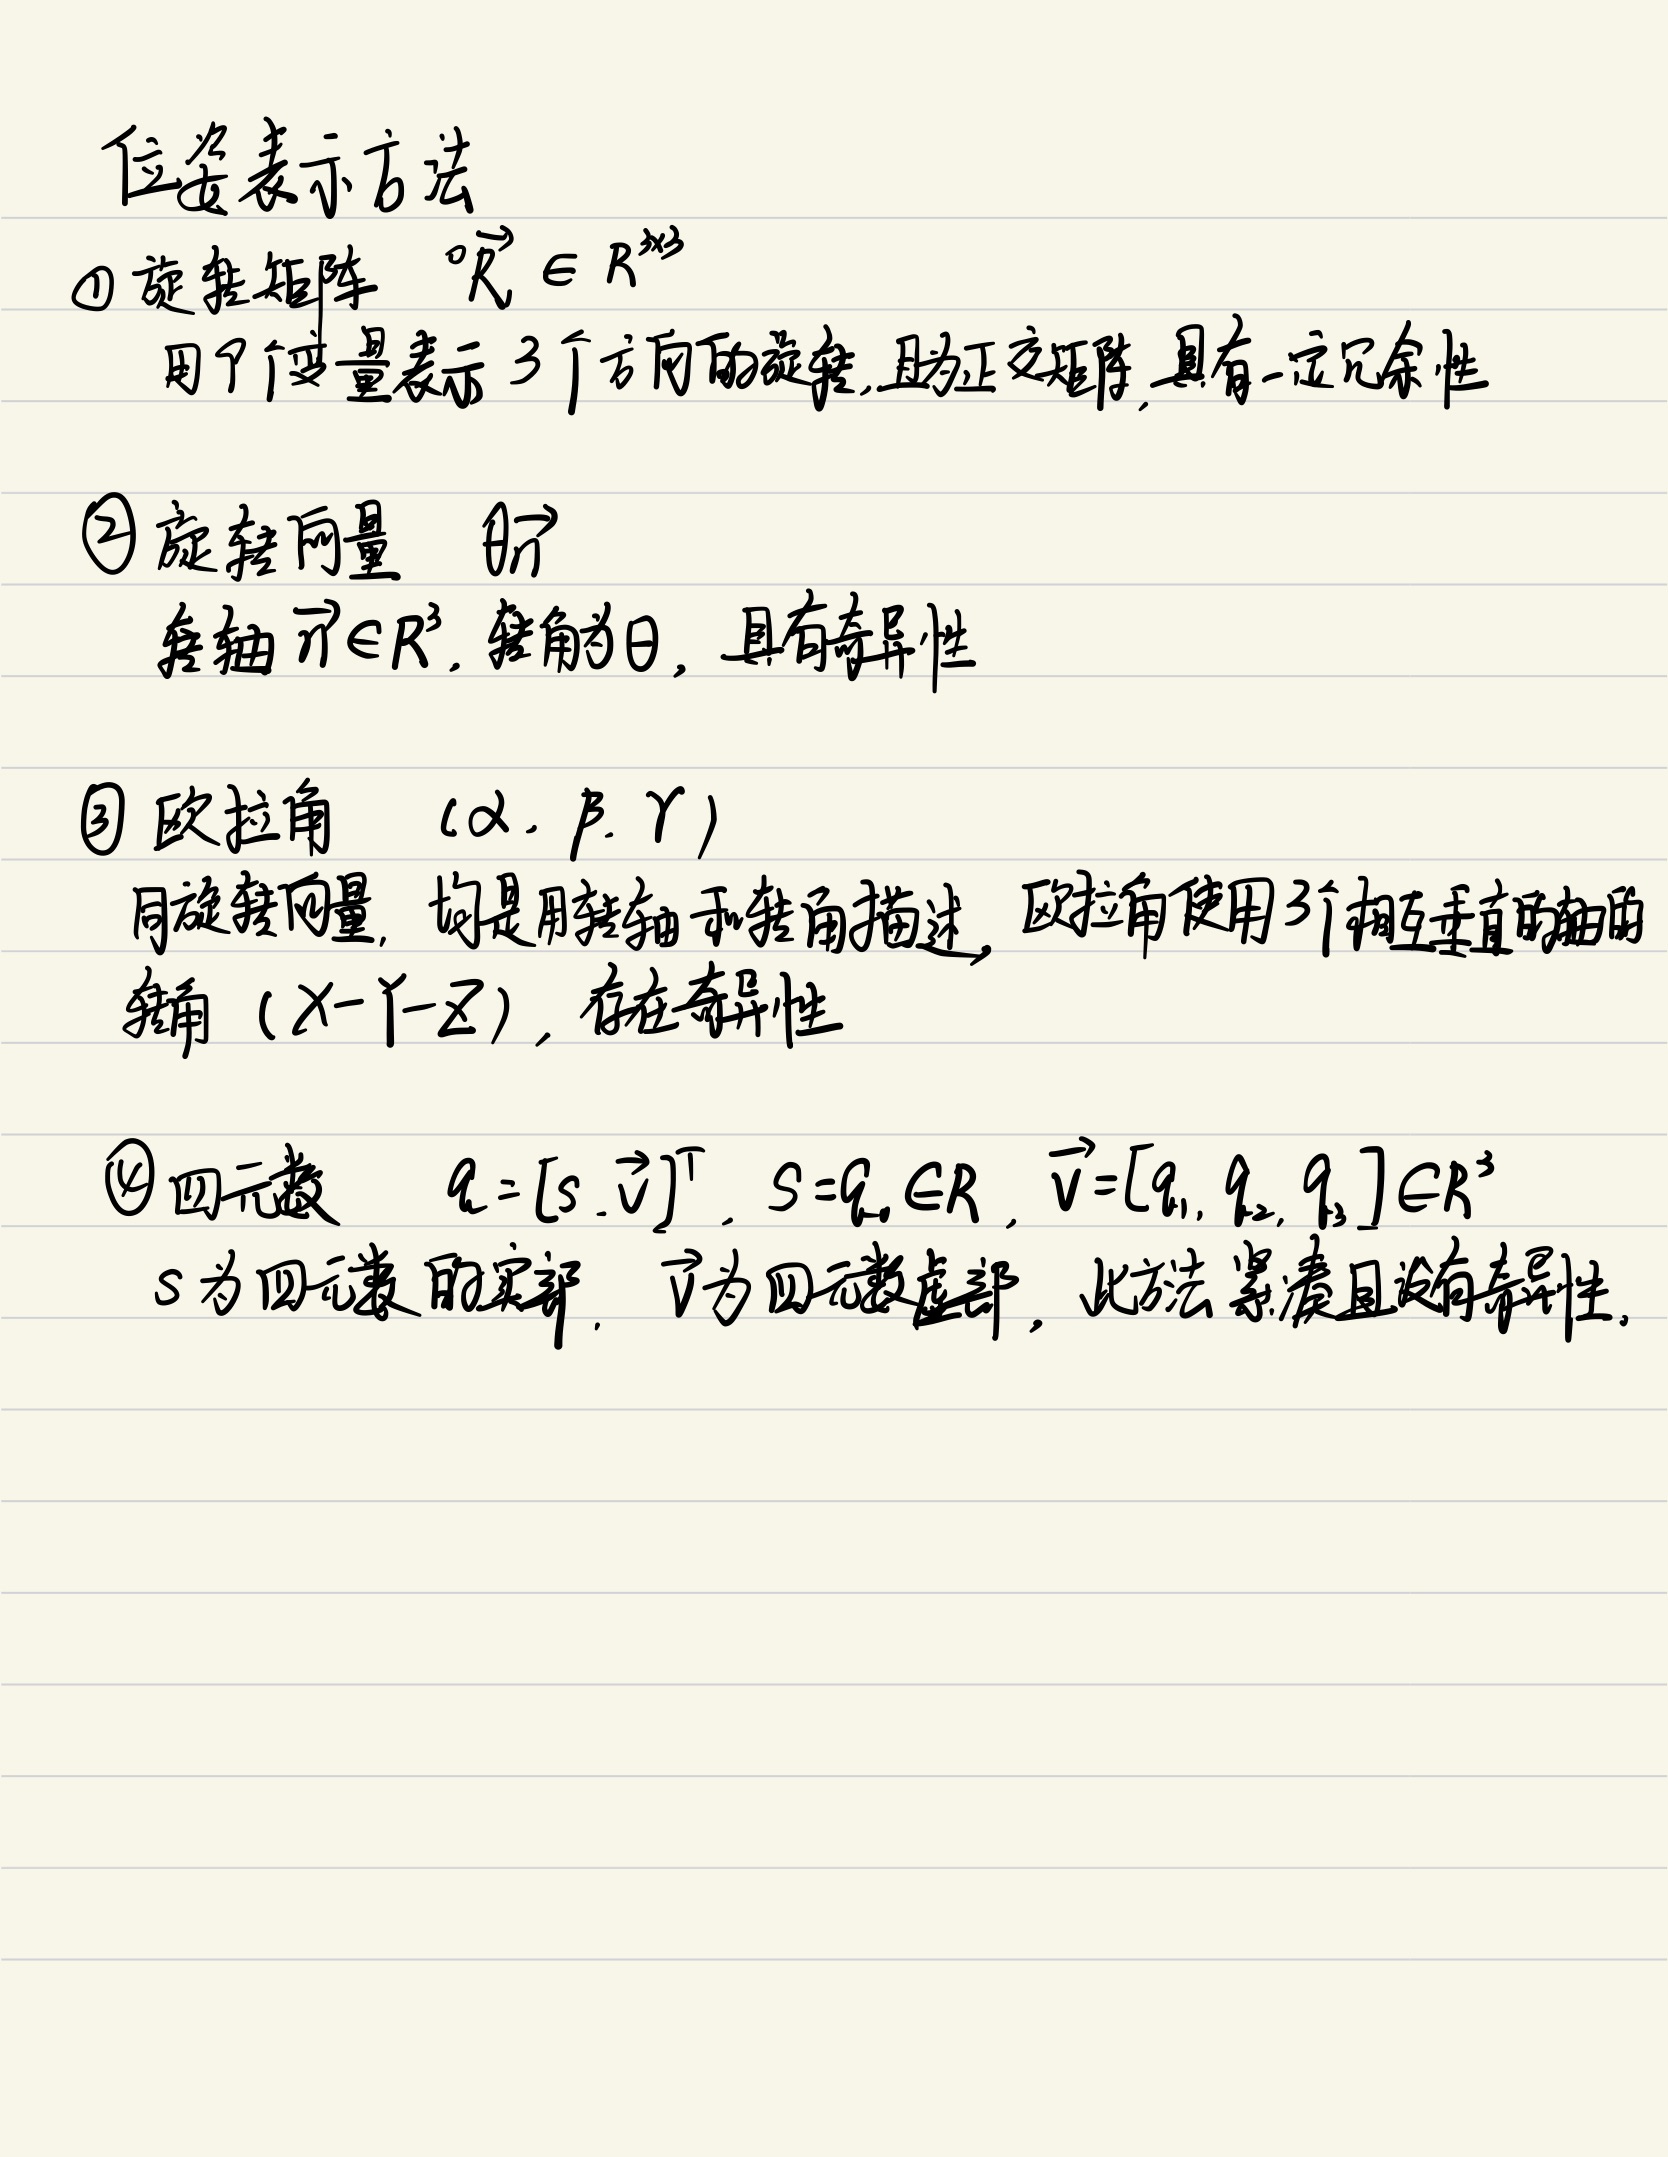 位姿表示方法
① 旋转矩阵 ⁰R⃗ ∈ R³ˣ³
用9个变量表示3个方向的旋转,且为正交矩阵,具有一定冗余性
② 旋转向量 θn⃗
转轴 n⃗∈R³, 转角为θ, 具有奇异性
③ 欧拉角 (α, β, γ)
同旋转向量, 均是用转轴和转角描述, 欧拉角使用3个相互垂直的轴的
转角 (X-Y-Z), 存在奇异性
④ 四元数 q=[s, v⃗]ᵀ, s=q₀∈R, v⃗=[q₁, q₂, q₃]∈R³
s为四元数的实部, v⃗为四元数虚部, 此方法紧凑且没有奇异性.